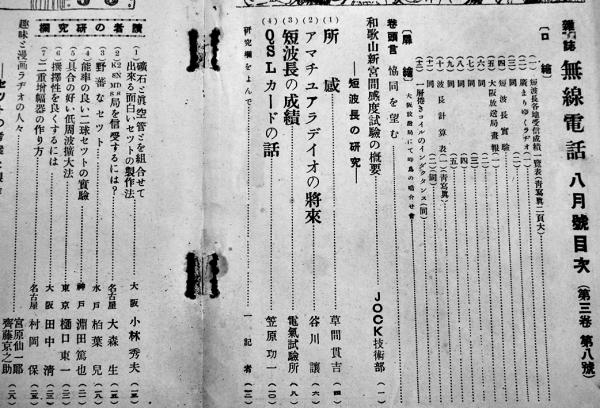 雜誌 無線電話 八月號目次 (第三卷 第八號)
【口繪】
(一) 短波長各地受信成績一覽表(靑寫眞二頁大)
(二) 廣まりゆくラヂオ(一)
(三) 同 (二)
(四) 短波長實驗
(五) 大阪放送局畫報(一)
(六) 同 (二)
(七) 同 (三)
(八) 同 (四)
(九) 同 (五)
(十) 波長計算表(一)(靑寫眞)
(十一) 同 (二)(同)
(十二) 一層捲きコイルのインダクタンス(同)
【扉繪】 大阪放送局にて時鳥の鳴合せ會
卷頭言 協同を望む (一)
和歌山新宮間感度試驗の概要 JOCK技術部
━短波長の硏究━
(1) 所感 草間貫吉 (四)
(2) アマチユアラデイオの將來 谷川讓 (六)
(3) 短波長の成績 電氣試驗所 (九)
(4) QSLカードの話 笠原功一 (二〇)
硏究欄をよんで 一記者 (二三)
讀者の硏究欄
(1) 礦石と眞空管とを組合せて出來る面白いセットの製作法 大阪 小林秀夫
(2) 局を信受するには? 名古屋 大森生
(3) 野蕃なセット 水戸 柏葉兒
(4) 能率の良い二球セットの實驗 神戸 淵田篤也
(5) 具合の好い低周波擴大法 東京 樋口東一
(6) 撰擇性を良くするには 大阪 田中淸
(7) 二重增幅器の作り方 名古屋 村岡保
趣味と漫画ラヂオの人々 宮原仙一郎 齊藤京之助